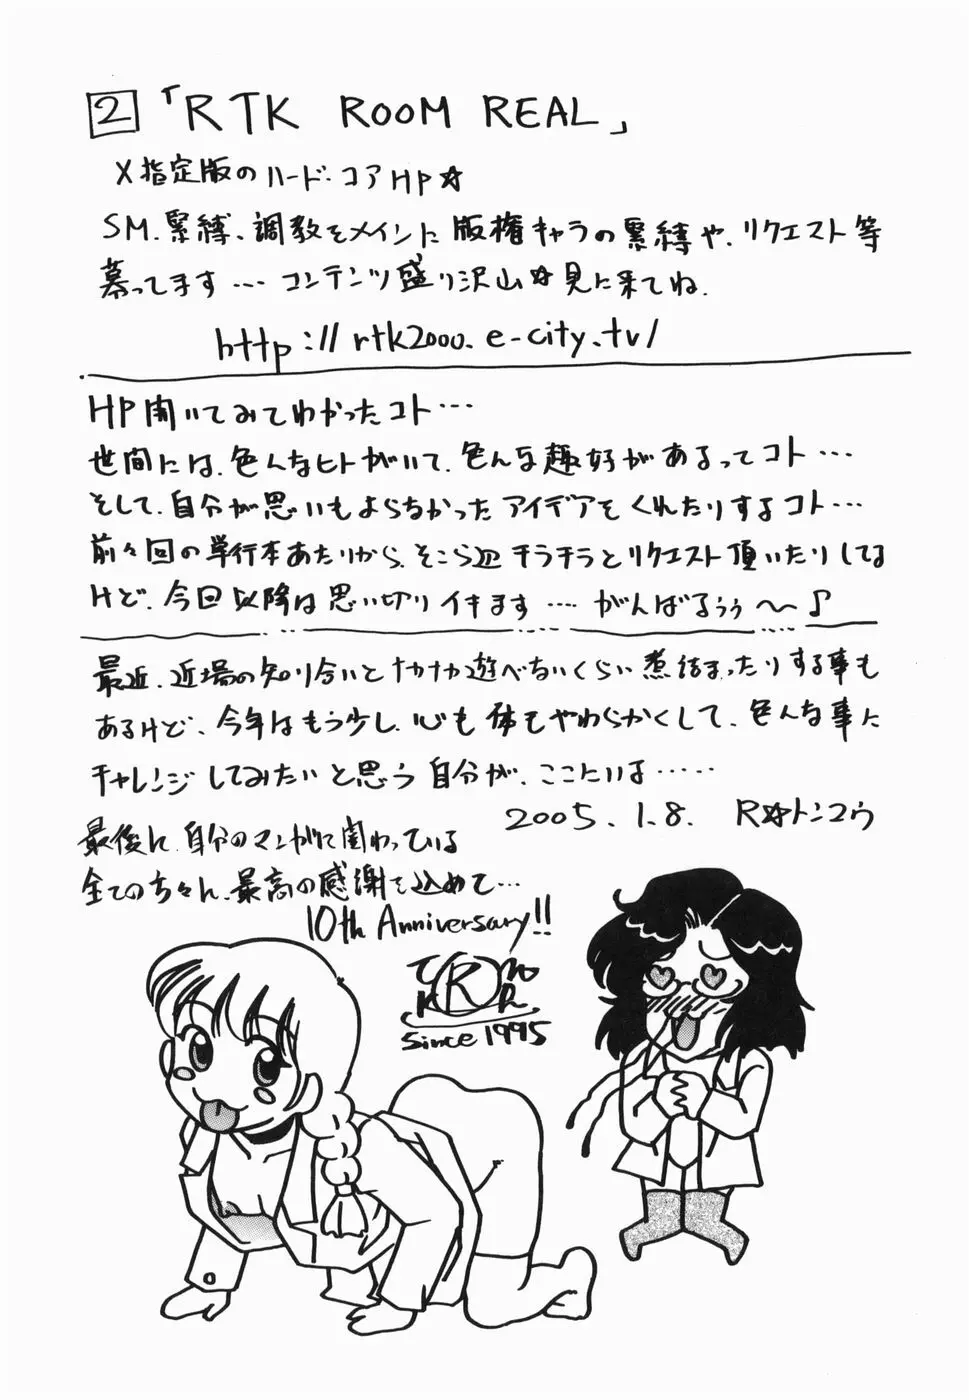 2 「RTK ROOM REAL」
X指定版のハード・コアHP☆
SM、緊縛、調教をメインに版権キャラの緊縛や、リクエスト等
募ってます…コンテンツ盛り沢山☆見に来てね.
http://rtk2000.e-city.tv/
HP開いてみてわかったコト…
世間には、色んなヒトがいて、色んな趣好があるってコト…
そして、自分が思いもよらなかったアイデアをくれたりするコト…
前々回の単行本あたりから、そこら辺チラチラとリクエスト頂いたりしてる
けど、今回以降は思い切りイキます…. がんばるぅぅ〜♪
最近、近場の知り合いとナカナカ遊べないくらい煮詰まったりする事も
あるけど、今年はもう少し、心も体もやわらかくして、色んな事に
チャレンジしてみたいと思う自分が、ここにいる……
2005.1.8. R☆トンコウ
最後に、自分のマンガに関わっている
全ての方々へ、最高の感謝を込めて…
10th Anniversary!!
R
since 1995